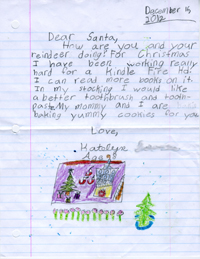 December 15,
2012
Dear Santa,
How are you and your
reindeer doing? For Christmas
I have been working really
hard for a Kindle Fire HD.
I can read more books on it.
In my stocking I would like
a better toothbrush and tooth-
paste. My mommy and are
baking yummy cookies for you.
Love,
Katelyn